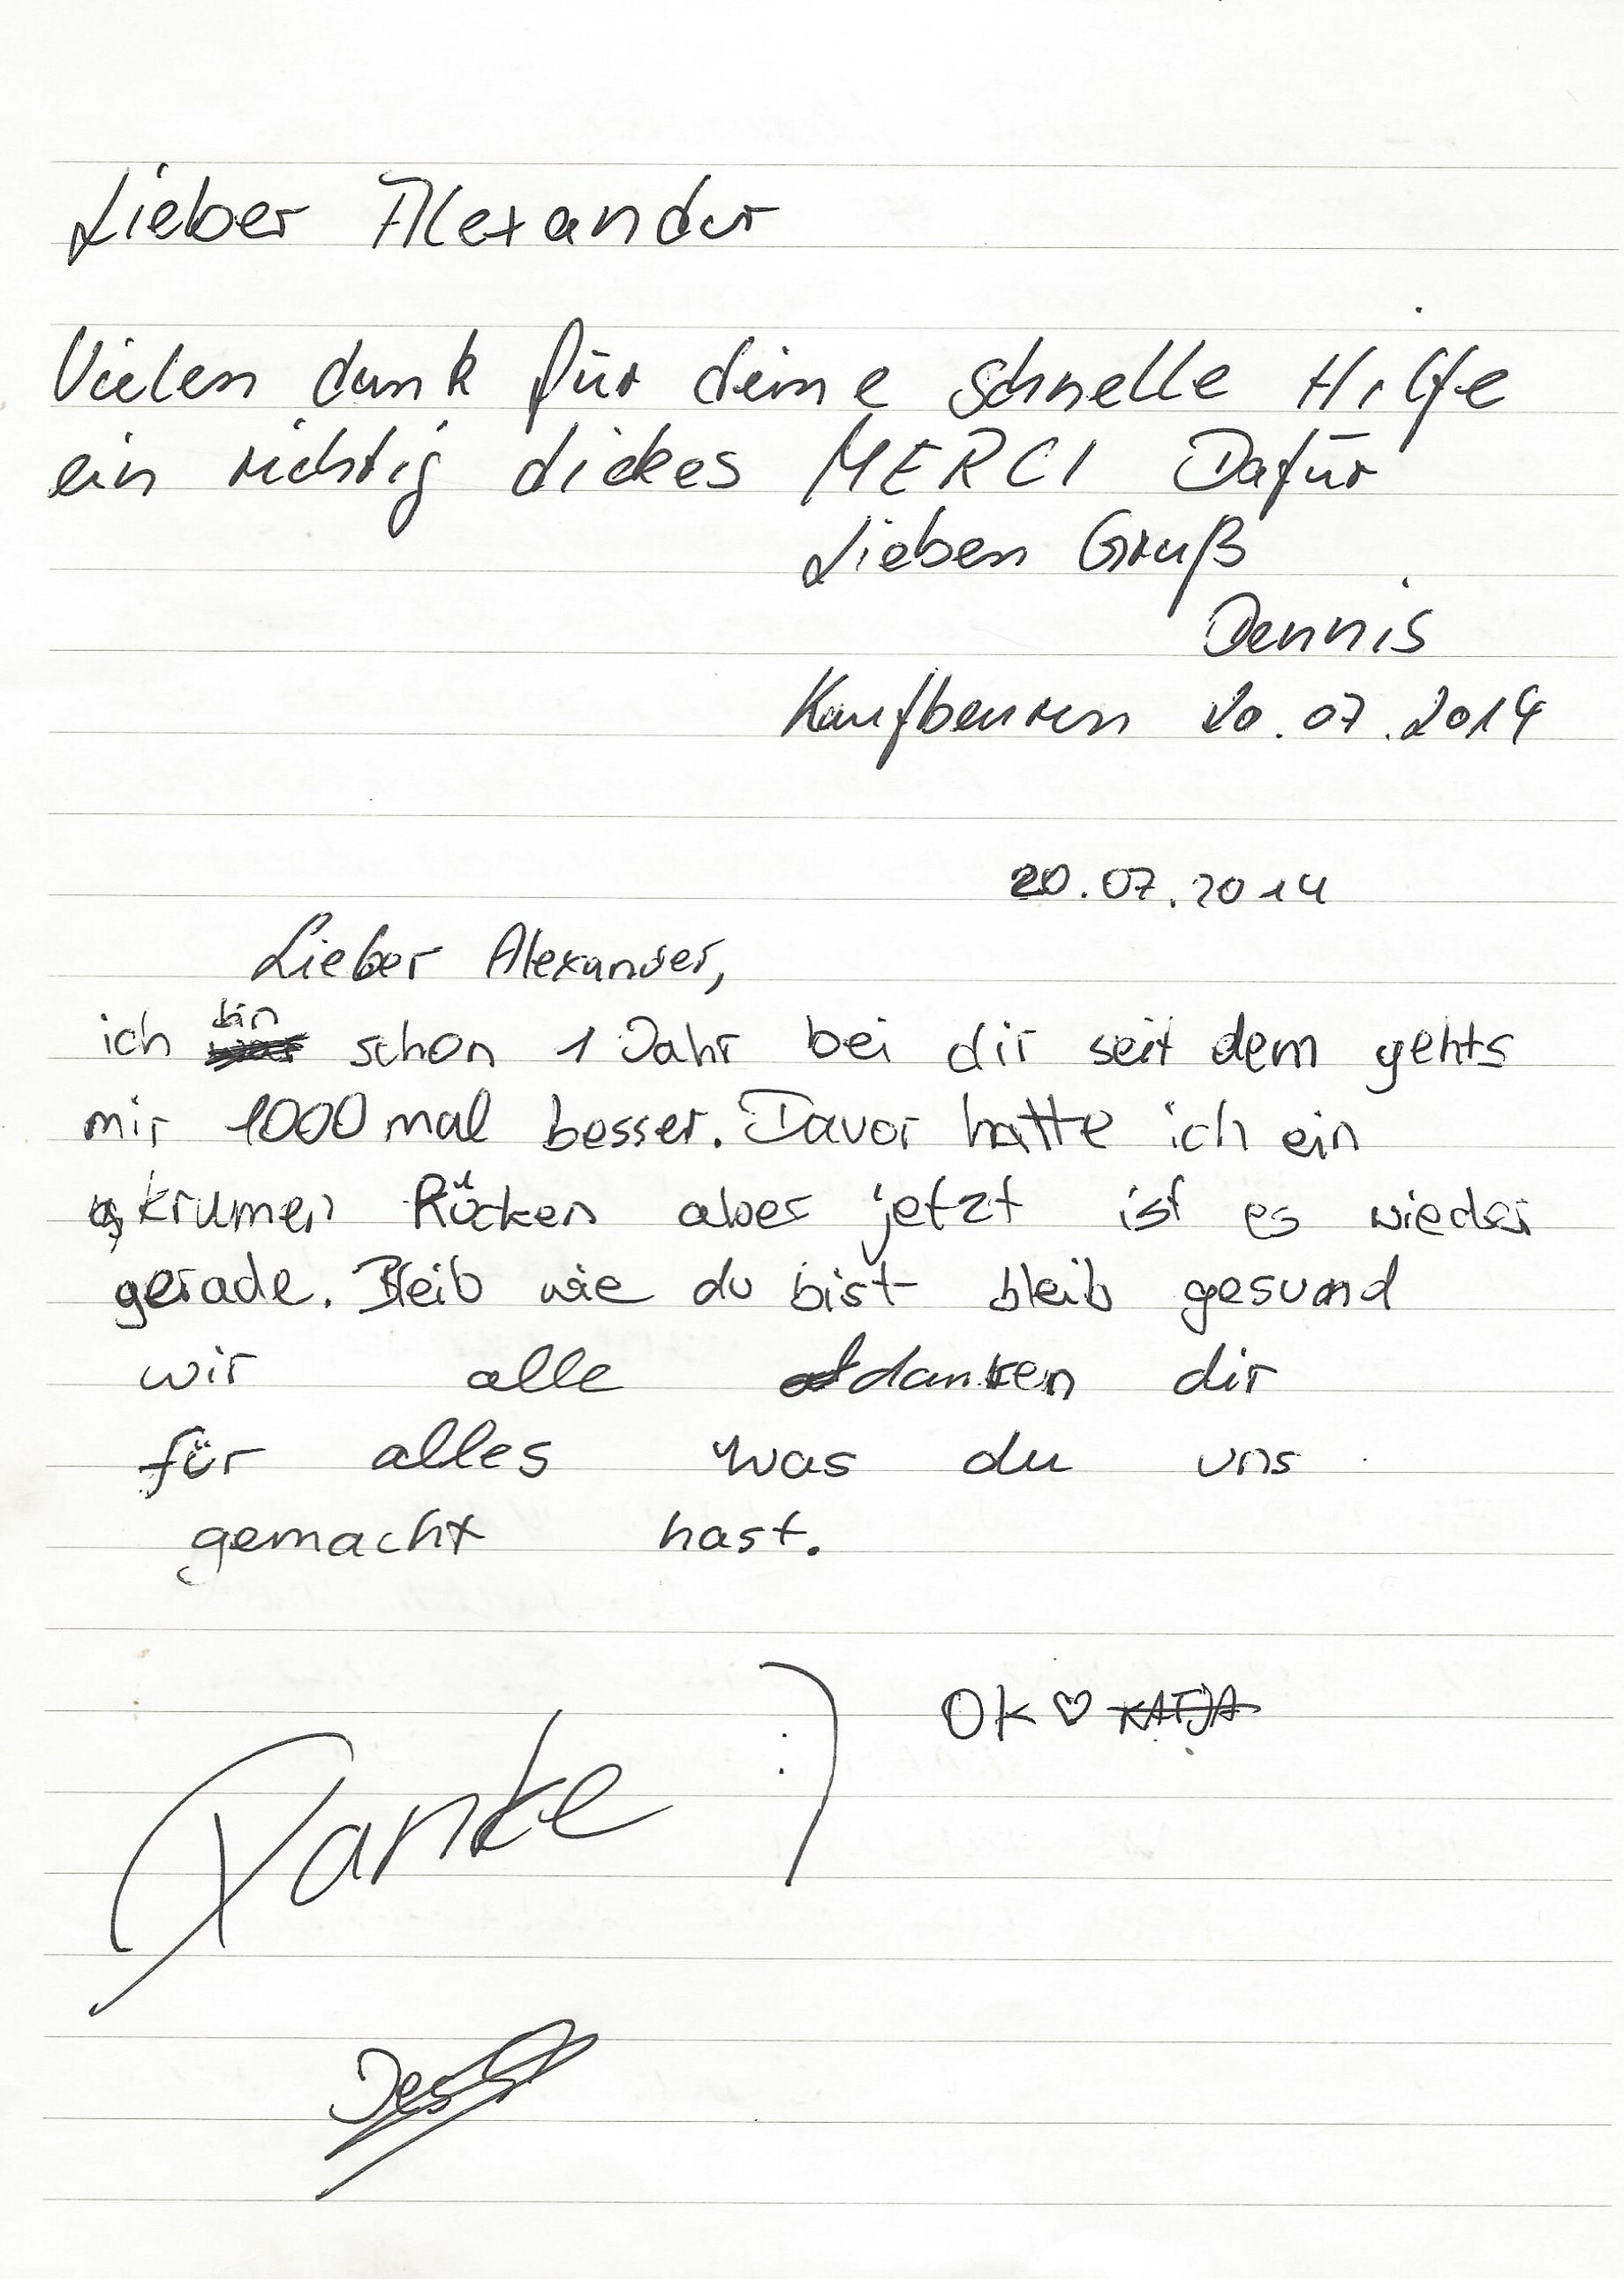 Lieber Alexander
Vielen dank für deine schnelle Hilfe
ein richtig dickes MERCI Dafür
Lieben Gruß
Dennis
Kaufbeuren 20.07.2014
20.07.2014
Lieber Alexander,
ich bin schon 1 Jahr bei dir seit dem gehts
mir 1000 mal besser. Davor hatte ich ein
krumen Rücken aber jetzt ist es wieder
gerade. Bleib wie du bist bleib gesund
wir alle danken dir
für alles was du uns
gemacht hast.
Danke :) OK ♡ KATJA